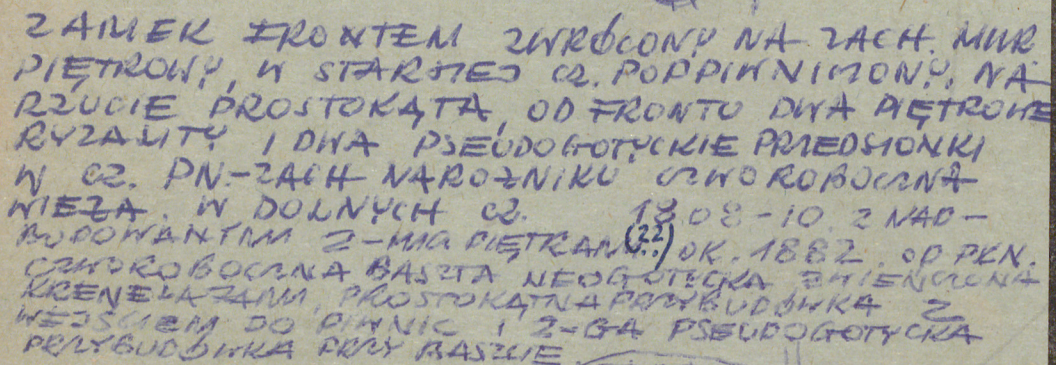 ZAMEK FRONTEM ZWRÓCONY NA ZACH. MUR
PIĘTROWY, W STARSZEJ CZ. PODPIWNICZONY. NA
RZUCIE PROSTOKĄTA, OD FRONTU DWA PIĘTROWE
RYZALITY I DWA PSEUDOGOTYCKIE PRZEDSIONKI
W CZ. PN.-ZACH NAROŻNIKU CZWOROBOCZNA
WIEŻA. W DOLNYCH CZ. 1808-10. Z NAD-
BUDOWANYMI 2-MA PIĘTRAMI (22) OK. 1882. OD PŁN.
CZWOROBOCZNA BASZTA NEOGOTYCKA ZWIEŃCZONA
KRENELAŻAMI, PROSTOKĄTNA PRZYBUDÓWKA Z
WEJŚCIEM DO PIWNIC I 2-GA PSEUDOGOTYCKA
PRZYBUDÓWKA PRZY BASZCIE.